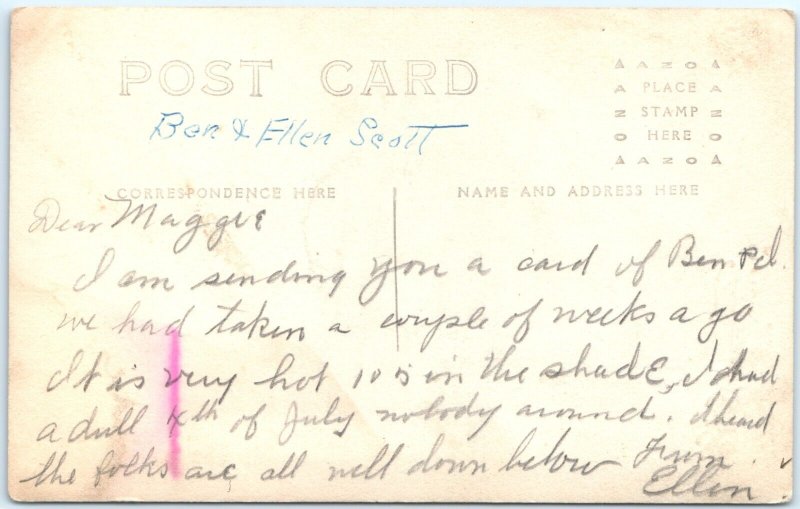 POST CARD
AZOA
A PLACE A
Z STAMP Z
O HERE O
AZOA
Ben & Ellen Scott
CORRESPONDENCE HERE
NAME AND ADDRESS HERE
Dear Maggie
I am sending you a card of Ben & I.
we had taken a couple of weeks ago
It is very hot 105 in the shade, I had
a dull 4th of July nobody around. I heard
the folks are all well down below From
Ellen.